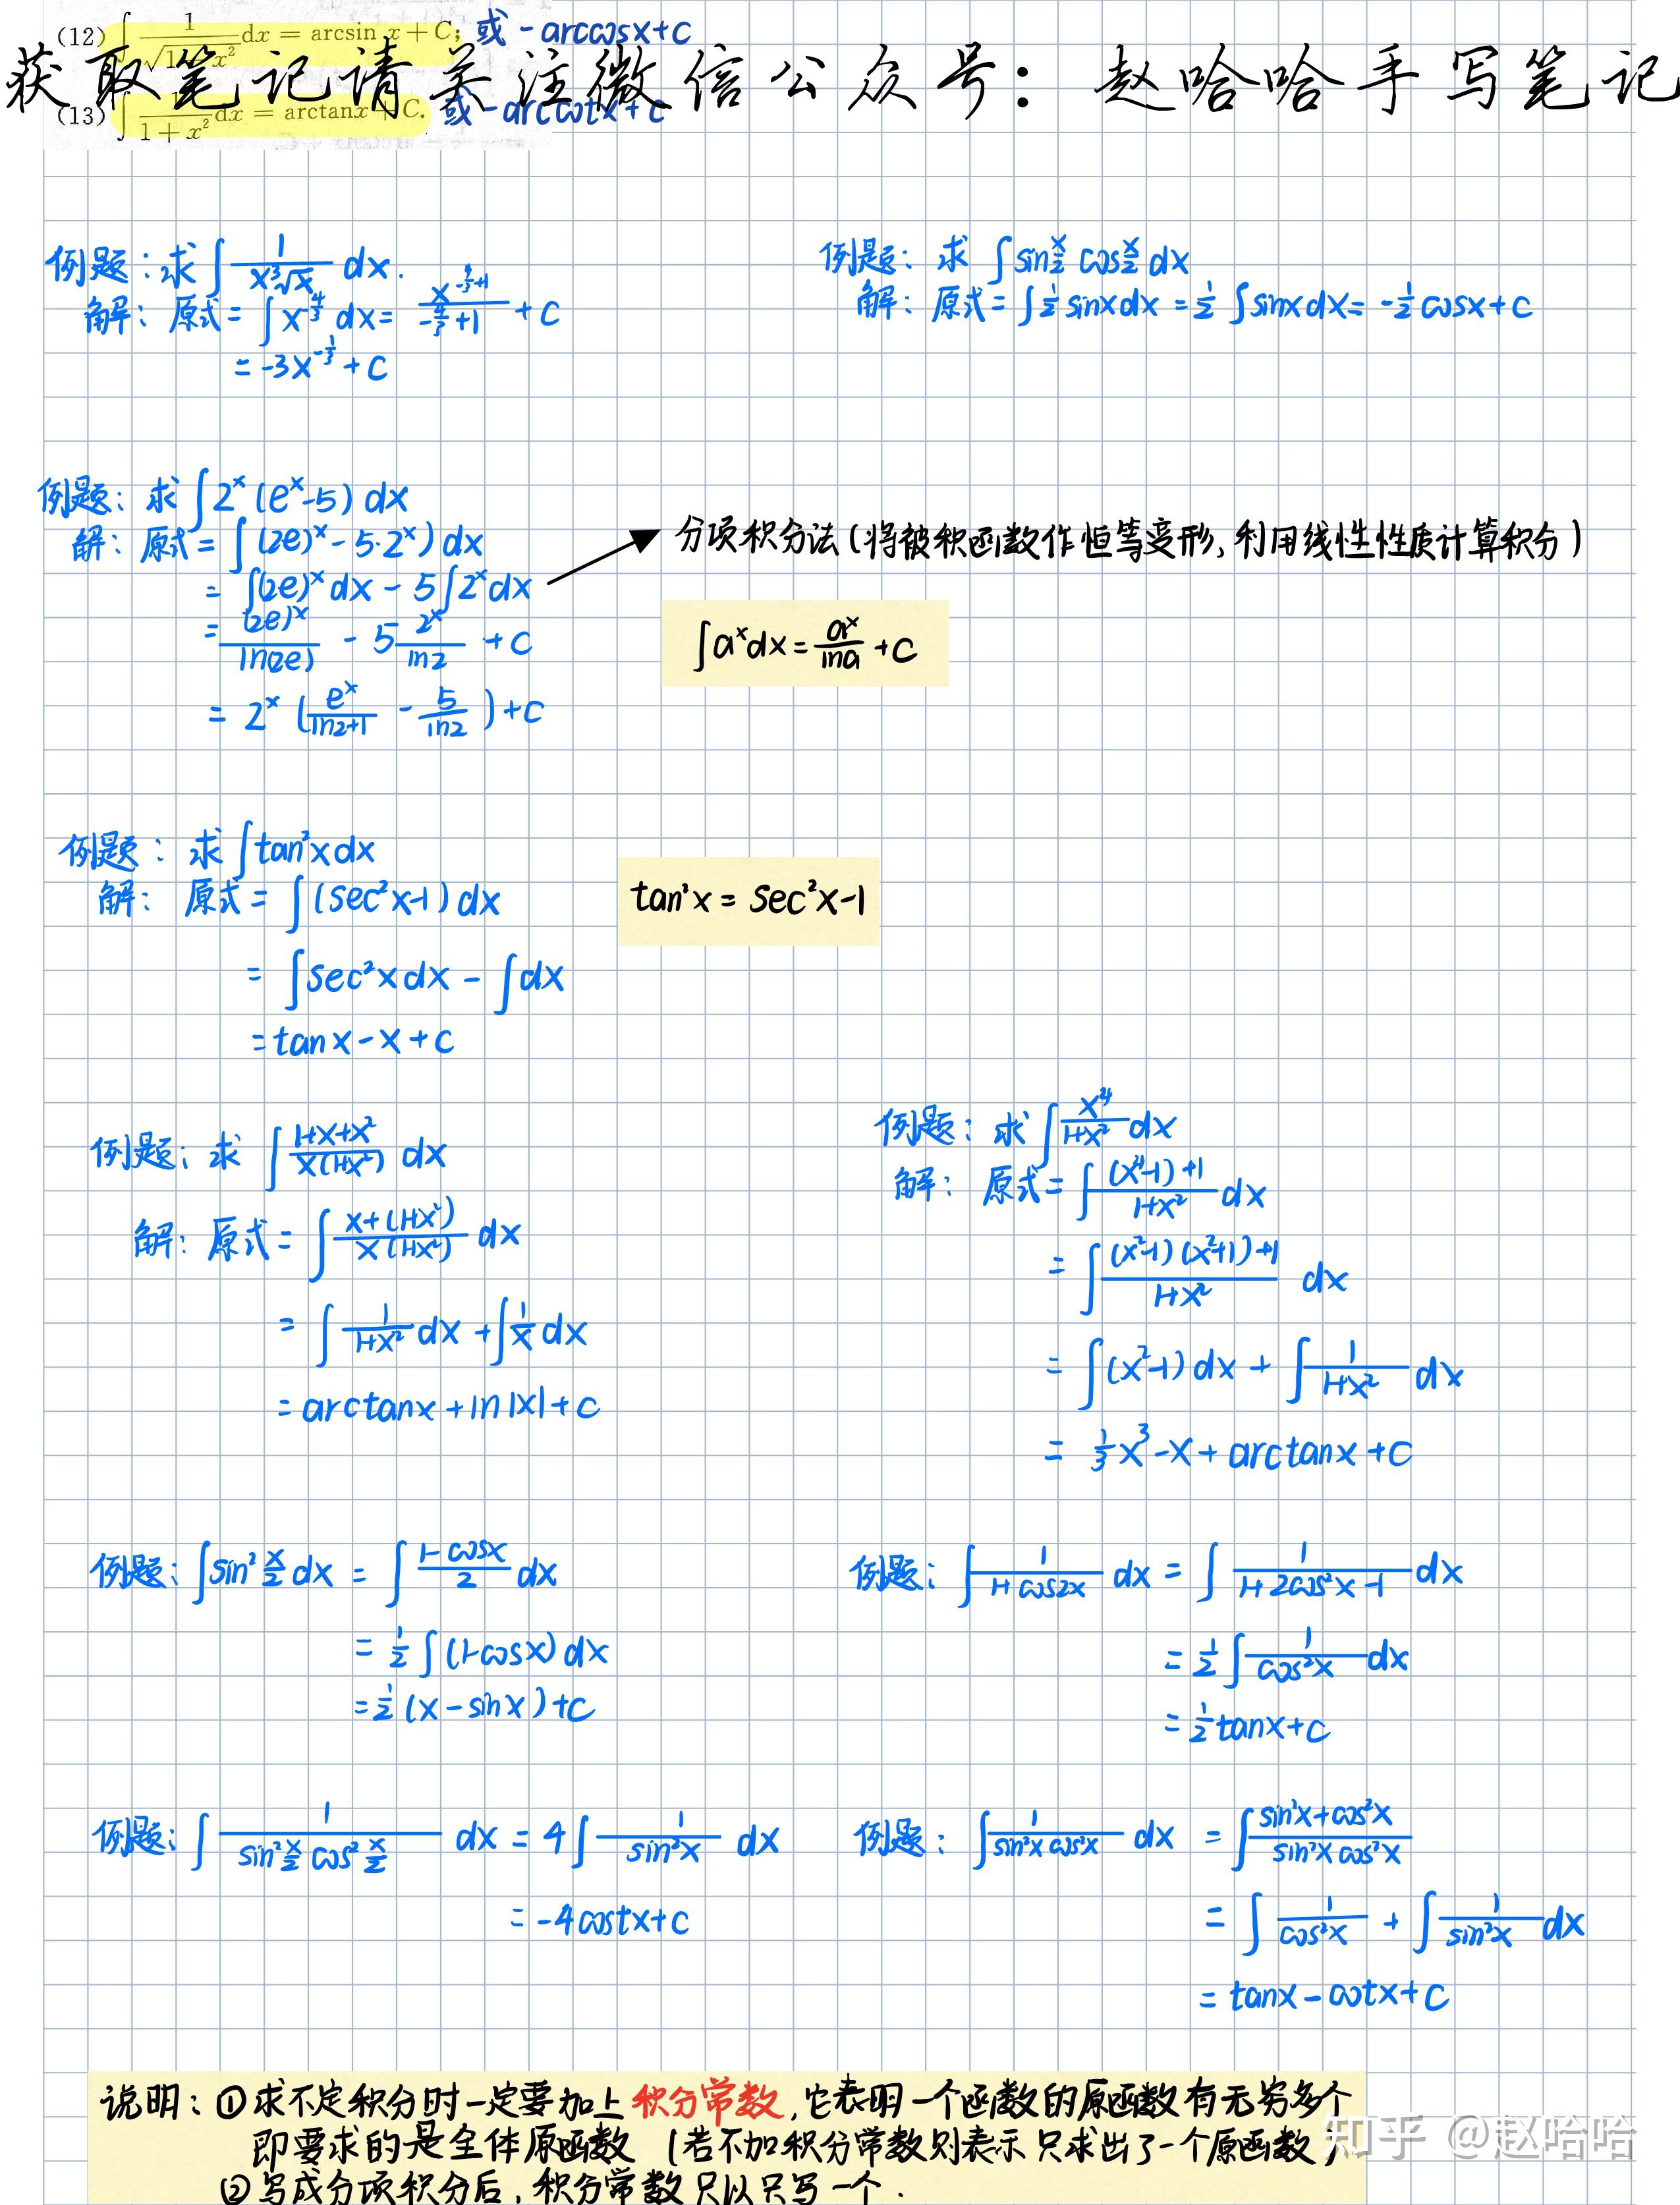 (12) ∫ 1/√(1-x²) dx = arcsin x + C; 或 -arccosx+c
获取笔记请关注微信公众号：赵哈哈手写笔记
(13) ∫ 1/(1+x²) dx = arctanx + C. 或 -arccotx+c
例题：求 ∫ 1/(x³√x) dx.
解：原式 = ∫ x^(-4/3) dx = x^(-4/3+1)/(-4/3+1) + C
= -3x^(-1/3) + C
例题：求 ∫ sin x/2 cos x/2 dx
解：原式 = ∫ 1/2 sinx dx = 1/2 ∫ sinx dx = -1/2 cosx + C
例题：求 ∫ 2^x (e^x-5) dx
解：原式 = ∫ (2e)^x - 5·2^x) dx
= ∫(2e)^x dx - 5∫2^x dx
= (2e)^x/ln(2e) - 5 2^x/ln2 + C
= 2^x (e^x/(ln2+1) - 5/ln2) + C
分项积分法(将被积函数作恒等变形,利用线性性质计算积分)
∫a^x dx = a^x/lna + C
例题：求 ∫tan²x dx
解：原式 = ∫(sec²x-1) dx
= ∫sec²x dx - ∫dx
= tanx - x + C
tan²x = sec²x-1
例题：求 ∫ (1+x+x²)/(x(1+x²)) dx
解：原式 = ∫ (x+(1+x²))/(x(1+x²)) dx
= ∫ 1/(1+x²) dx + ∫ 1/x dx
= arctanx + ln|x| + C
例题：求 ∫ x⁴/(1+x²) dx
解：原式 = ∫ ((x⁴-1)+1)/(1+x²) dx
= ∫ ((x²-1)(x²+1)+1)/(1+x²) dx
= ∫(x²-1) dx + ∫ 1/(1+x²) dx
= 1/3 x³ - x + arctanx + C
例题：∫sin² x/2 dx = ∫ (1-cosx)/2 dx
= 1/2 ∫(1-cosx) dx
= 1/2 (x-sinx) + C
例题：∫ 1/(1+cos2x) dx = ∫ 1/(1+2cos²x-1) dx
= 1/2 ∫ 1/cos²x dx
= 1/2 tanx + C
例题：∫ 1/(sin² x/2 cos² x/2) dx = 4∫ 1/sin²x dx
= -4costx+c
例题：∫ 1/(sin²x cos²x) dx = ∫ (sin²x+cos²x)/(sin²x cos²x)
= ∫ 1/cos²x + ∫ 1/sin²x dx
= tanx - cotx + C
说明：①求不定积分时一定要加上积分常数,它表明一个函数的原函数有无穷多个
即要求的是全体原函数 (若不加积分常数则表示只求出了一个原函数)
②写成分项积分后,积分常数只以只写一个.
知乎 @赵哈哈